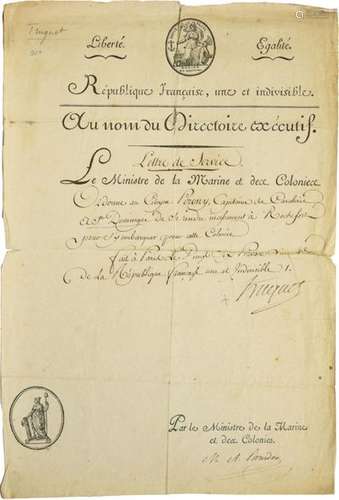 Truguet
Liberté. Egalité.
République Française, une et indivisible.
Au nom du Directoire exécutif.
Lettre de Service
Le Ministre de la Marine et des Colonies
Ordonne au Citoyen Capitaine de Cavalerie
à St Domingue de se rendre à Rochefort
pour s'y embarquer pour cette Colonie
fait à Paris Le
de la République française une et Indivisible ./.
Truguet
Par le Ministre de la Marine
et des Colonies.